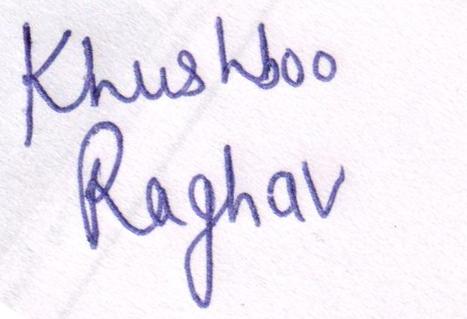 Khushboo
Raghav